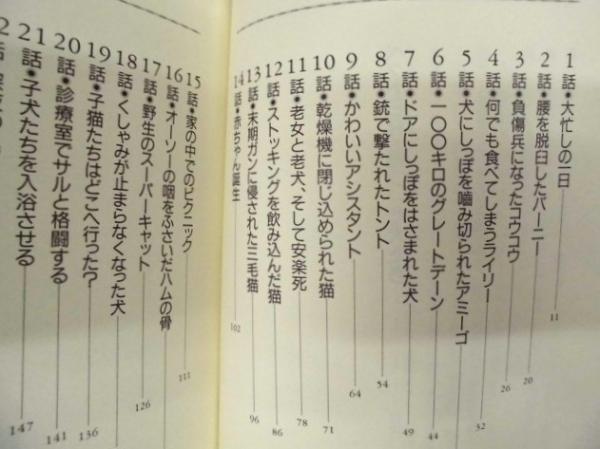 1話•大忙しの一日 11
2話•腰を脱臼したバーニー 20
3話•負傷兵になったコウコウ 26
4話•何でも食べてしまうライリー 32
5話•犬にしっぽを嚙み切られたアミーゴ
6話•一〇〇キロのグレートデーン 44
7話•ドアにしっぽをはさまれた犬 49
8話•銃で撃たれたトント 54
9話•かわいいアシスタント 64
10話•乾燥機に閉じ込められた猫 71
11話•老女と老犬、そして安楽死 78
12話•ストッキングを飲み込んだ猫 86
13話•末期ガンに侵された三毛猫 96
14話•赤ちゃん誕生 102
15話•家の中でのピクニック 111
16話•オーソーの咽をふさいだハムの骨
17話•野生のスーパーキャット 126
18話•くしゃみが止まらなくなった犬
19話•子猫たちはどこへ行った? 136
20話•診療室でサルと格闘する 141
21話•子犬たちを入浴させる 147